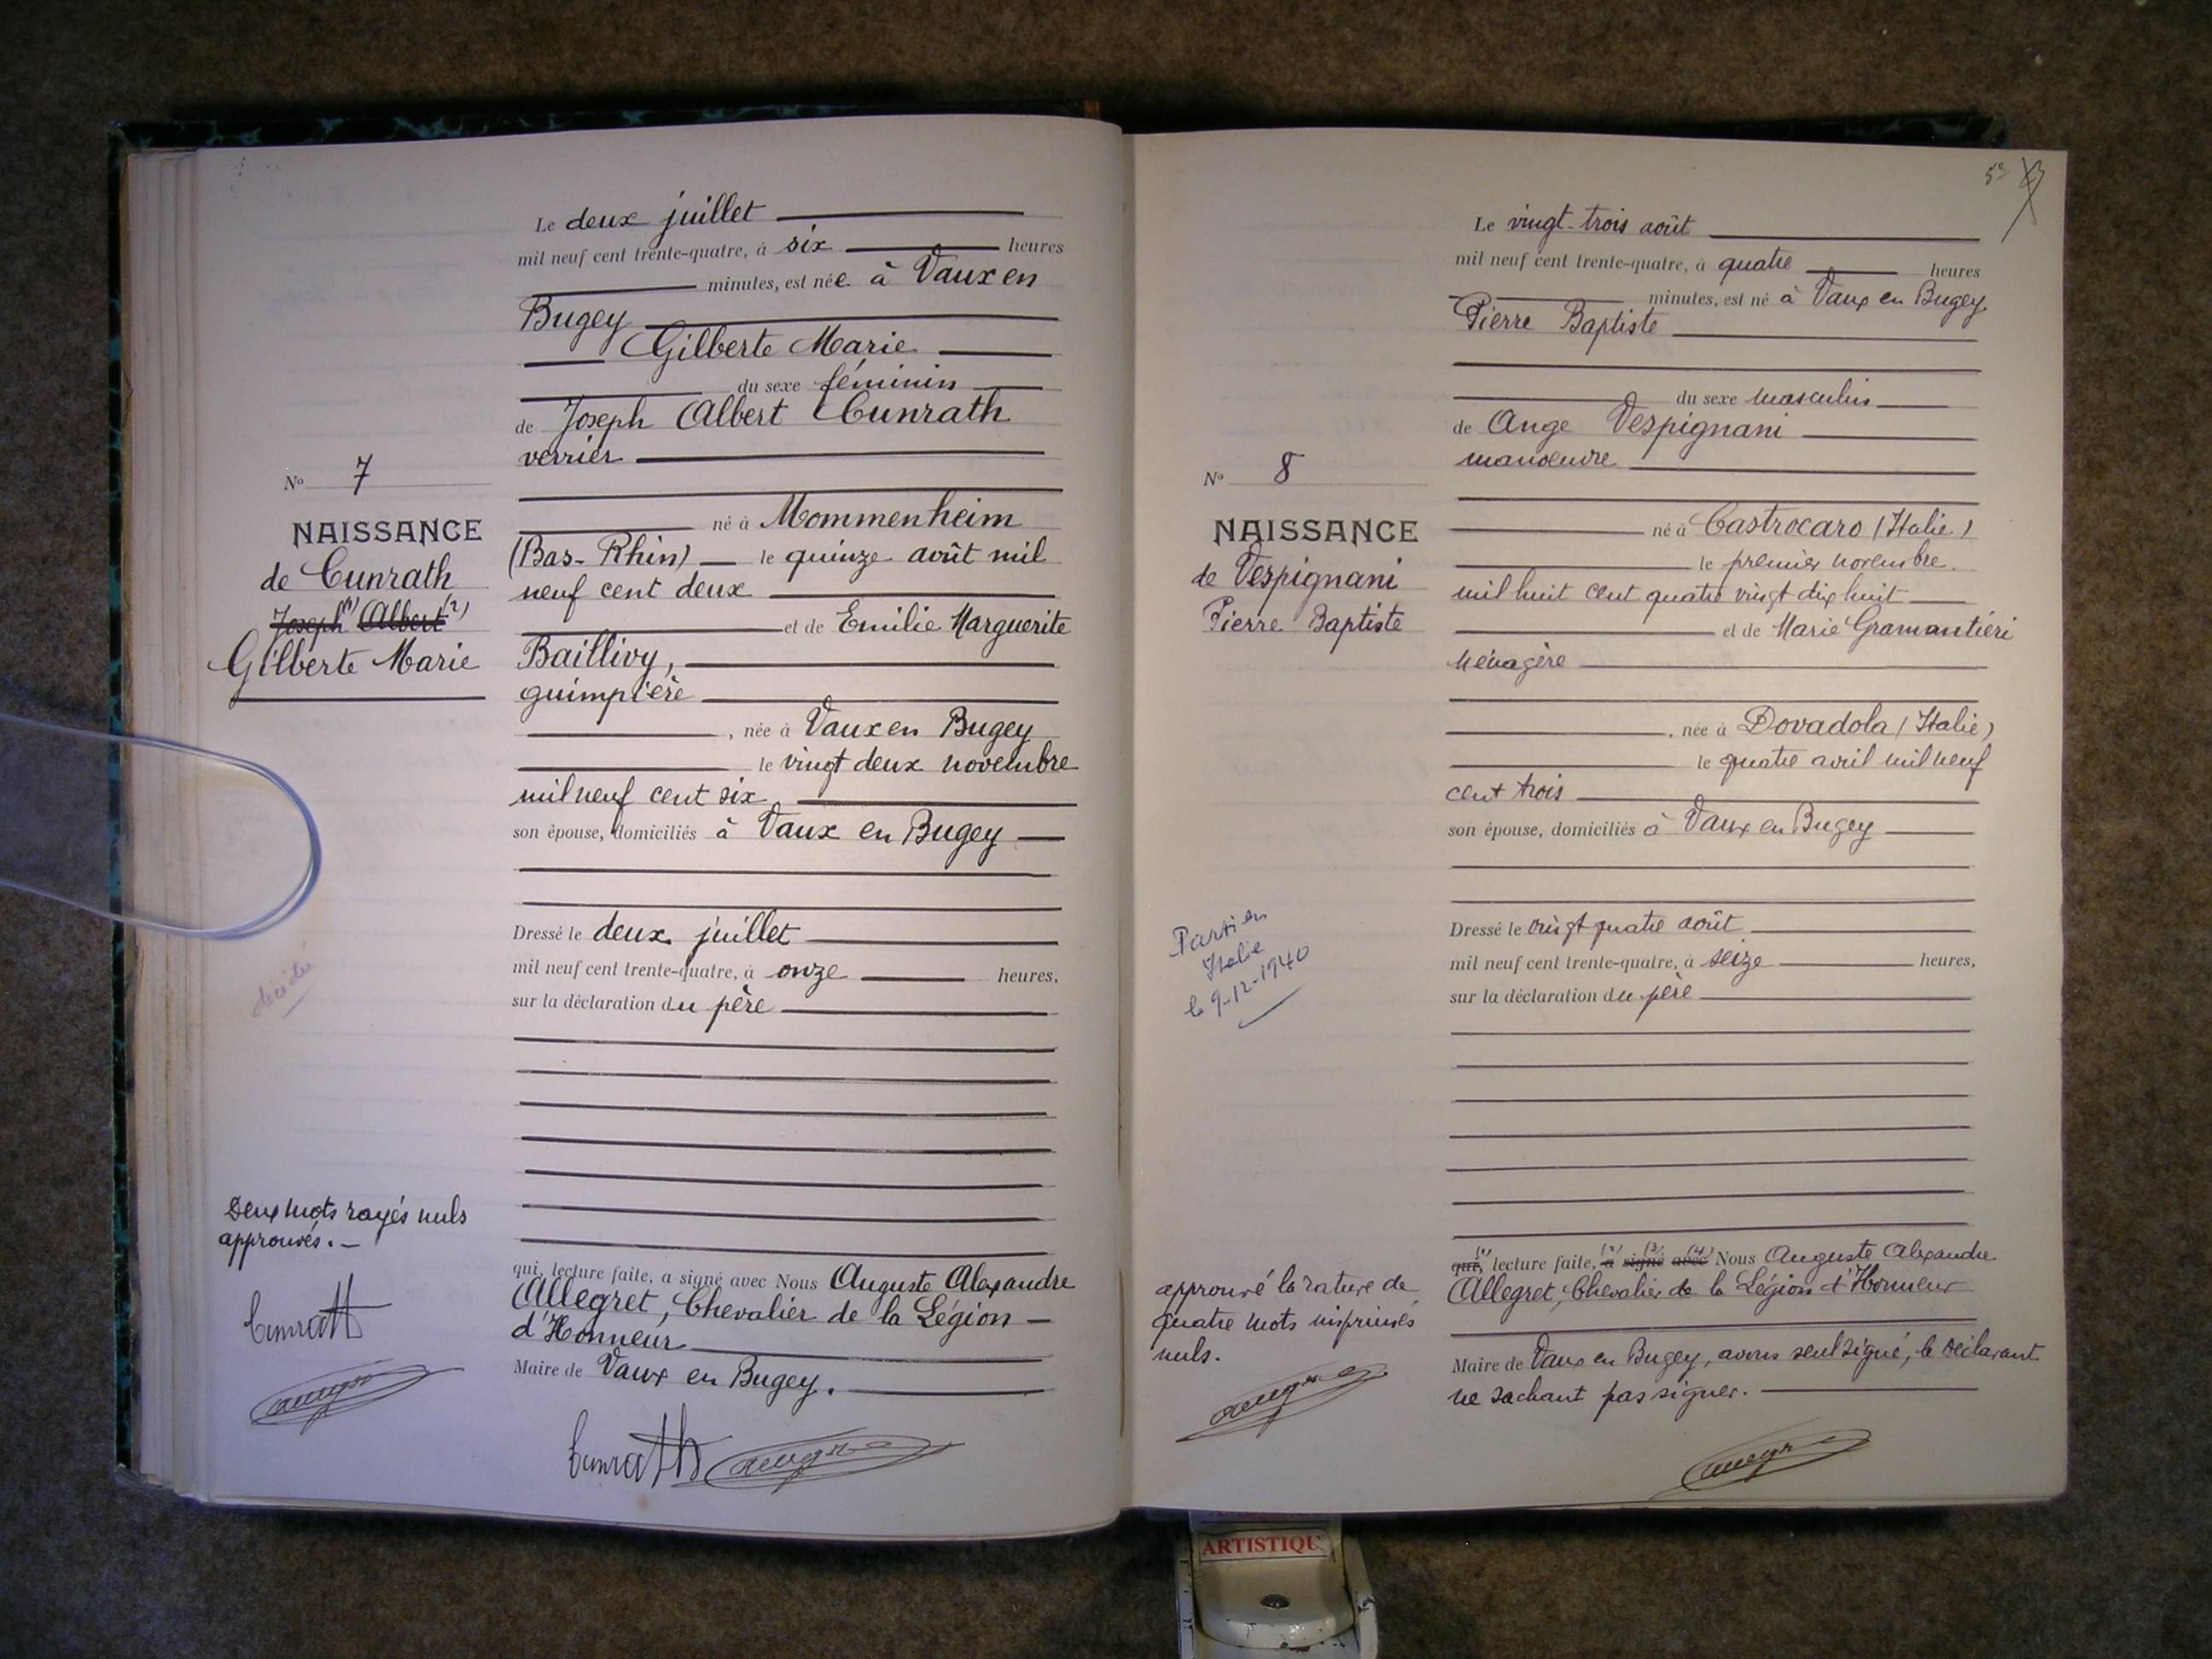 Le deux juillet
mil neuf cent trente-quatre, à six heures
minutes, est née à Vaux en
Bugey
Gilberte Marie
du sexe féminin
de Joseph Albert Cunrath
verrier
né à Mommenheim
(Bas-Rhin) le quinze août mil
neuf cent deux
et de Emilie Marguerite
Baillivy,
guimpière
, née à Vaux en Bugey
le vingt deux novembre
mil neuf cent six
son épouse, domiciliés à Vaux en Bugey
Dressé le deux juillet
mil neuf cent trente-quatre, à onze heures,
sur la déclaration du père
qui, lecture faite, a signé avec Nous Auguste Alexandre
Allegret, Chevalier de la Légion
d'Honneur
Maire de Vaux en Bugey.
Cunrath
No 7
NAISSANCE
de Cunrath
Joseph (1) Albert (2)
Gilberte Marie
Deux mots rayés nuls
approuvés.
Cunrath
Le vingt-trois août
mil neuf cent trente-quatre, à quatre heures
minutes, est né à Vaux en Bugey
Pierre Baptiste
du sexe masculin
de Ange Vespignani
manoeuvre
né à Castrocaro (Italie)
le premier novembre
mil huit cent quatre vingt dix huit
et de Marie Gramantiéri
ménagère
, née à Dovadola (Italie)
le quatre avril mil neuf
cent trois
son épouse, domiciliés à Vaux en Bugey
Dressé le vingt quatre août
mil neuf cent trente-quatre, à seize heures,
sur la déclaration du père
qui, (1) lecture faite, (2) a (3) signé (4) avec Nous Auguste Alexandre
Allegret, Chevalier de la Légion d'Honneur
Maire de Vaux en Bugey, avons seul signé, le déclarant
ne sachant pas signer.
No 8
NAISSANCE
de Vespignani
Pierre Baptiste
Parti en
Italie
le 9-12-1940
approuvé la rature de
quatre mots imprimés
nuls.
ARTISTIQU